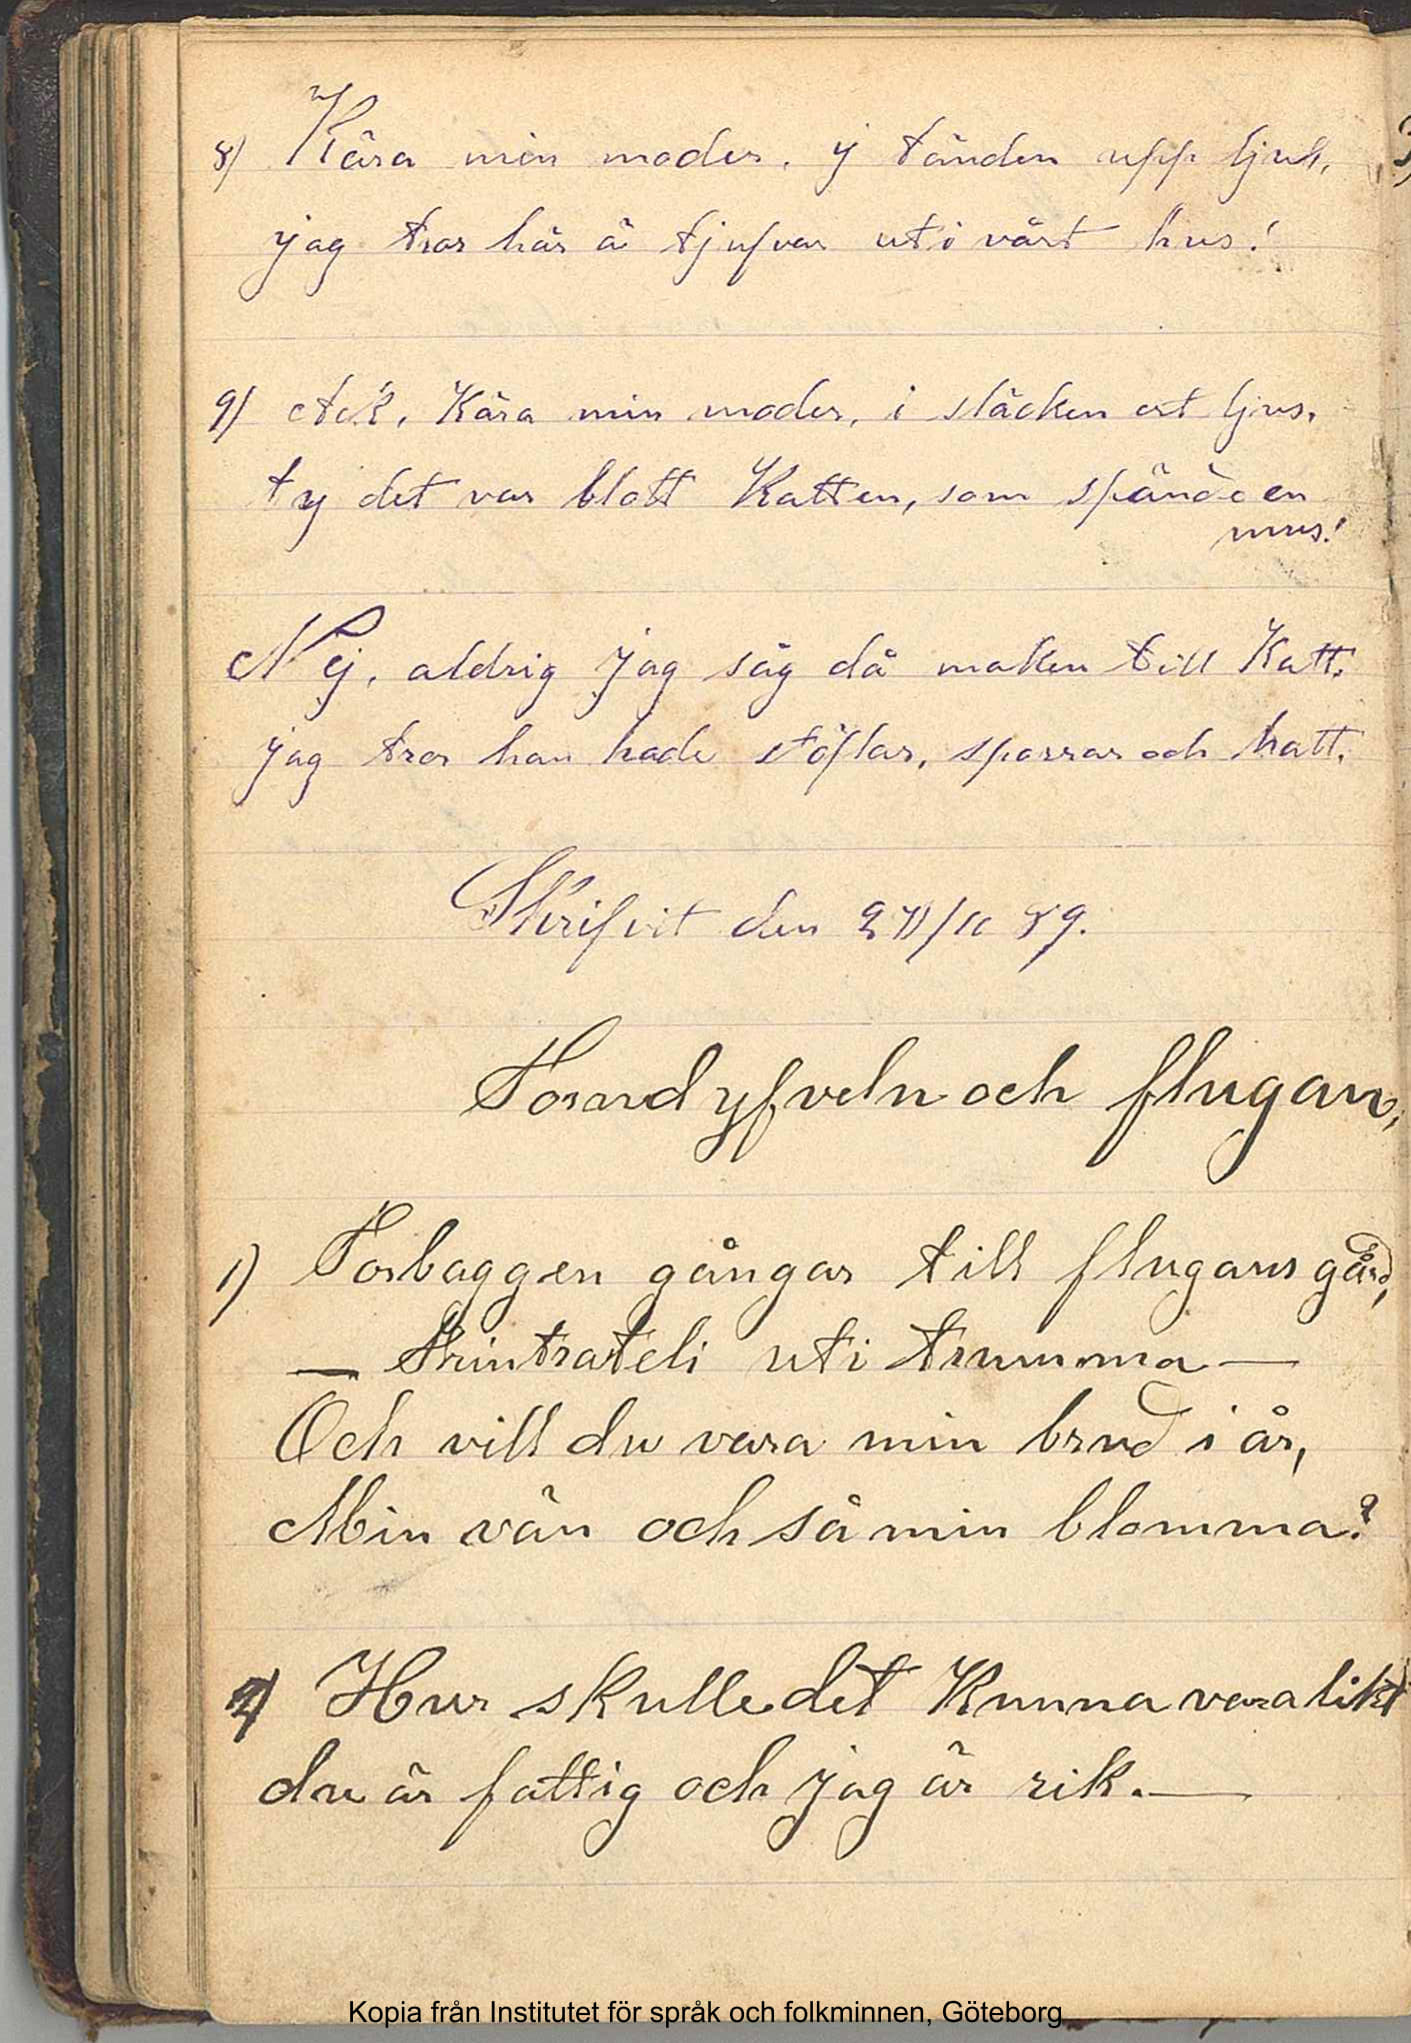 8) Kära min moder. ij tänden upp ljus,
jag tror här ä tjufvar uti vårt hus!
9) Ack, Kära min moder, i släcken ert ljus,
ty det var blott Katten, som spände en
mus!
Nej, aldrig jag såg då maken till Katt.
jag tror han hade stöflar, sporrar och hatt.
Skrifvit den 89.
Tordyfveln och flugan,
1) Torbaggen gångar till flugans gård,
— Trintrateli uti trumma —
Och vill du vara min brud i år,
Min vän och så min blomma?
2) Hur skulle det Kunna vara likt
du är fattig och jag är rik. —
Kopia från Institutet för språk och folkminnen, Göteborg